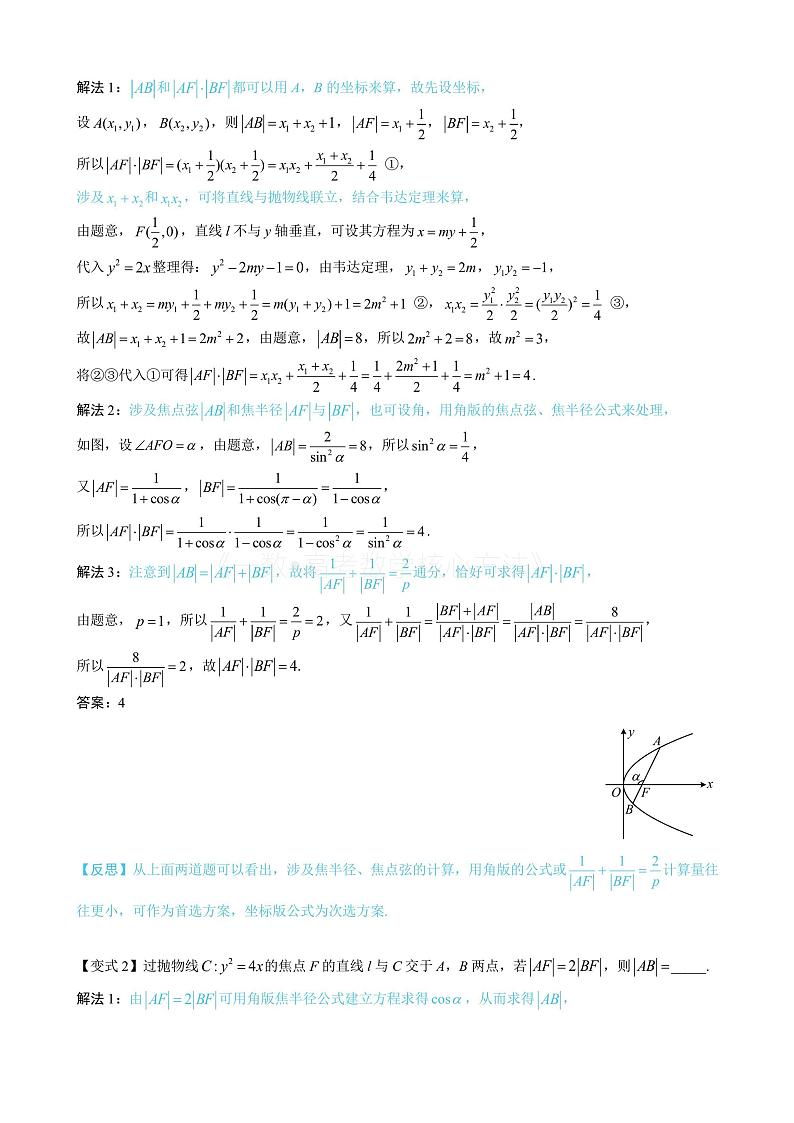 解法 1：|AB|和|AF|·|BF|都可以用 A，B 的坐标来算，故先设坐标，
设 A(x₁,y₁)，B(x₂,y₂)，则|AB|=x₁+x₂+1，|AF|=x₁+1/2，|BF|=x₂+1/2，
所以|AF|·|BF|=(x₁+1/2)(x₂+1/2)=x₁x₂+(x₁+x₂)/2+1/4 ①，
涉及 x₁+x₂和x₁x₂，可将直线与抛物线联立，结合韦达定理来算，
由题意，F(1/2,0)，直线 l 不与 y 轴垂直，可设其方程为 x=my+1/2，
代入 y²=2x整理得：y²-2my-1=0，由韦达定理，y₁+y₂=2m，y₁y₂=-1，
所以 x₁+x₂=my₁+1/2+my₂+1/2=m(y₁+y₂)+1=2m²+1 ②，x₁x₂=y₁²/2·y₂²/2=(y₁y₂/2)²=1/4 ③，
故|AB|=x₁+x₂+1=2m²+2，由题意，|AB|=8，所以2m²+2=8，故 m²=3，
将②③代入①可得|AF|·|BF|=x₁x₂+(x₁+x₂)/2+1/4=1/4+(2m²+1)/2+1/4=m²+1=4.
解法 2：涉及焦点弦|AB|和焦半径|AF|与|BF|，也可设角，用角版的焦点弦、焦半径公式来处理，
如图，设∠AFO=α，由题意，|AB|=2/sin²α=8，所以sin²α=1/4，
又|AF|=1/(1+cosα)，|BF|=1/(1+cos(π-α))=1/(1-cosα)，
所以|AF|·|BF|=1/(1+cosα)·1/(1-cosα)=1/(1-cos²α)=1/sin²α=4.
解法 3：注意到|AB|=|AF|+|BF|，故将1/|AF|+1/|BF|=2/p通分，恰好可求得|AF|·|BF|，
由题意，p=1，所以1/|AF|+1/|BF|=2/p=2，又1/|AF|+1/|BF|=(|BF|+|AF|)/(|AF|·|BF|)=|AB|/(|AF|·|BF|)=8/(|AF|·|BF|)，
所以8/(|AF|·|BF|)=2，故|AF|·|BF|=4.
答案：4
y
A
α
O F x
B
【反思】从上面两道题可以看出，涉及焦半径、焦点弦的计算，用角版的公式或1/|AF|+1/|BF|=2/p计算量往
往更小，可作为首选方案，坐标版公式为次选方案.
【变式 2】过抛物线C:y²=4x的焦点 F 的直线 l 与 C 交于 A，B 两点，若|AF|=2|BF|，则|AB|=_____.
解法 1：由|AF|=2|BF|可用角版焦半径公式建立方程求得cosα，从而求得|AB|，